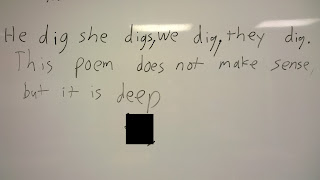 He dig she digs, we dig, they dig.
This poem does not make sense,
but it is deep